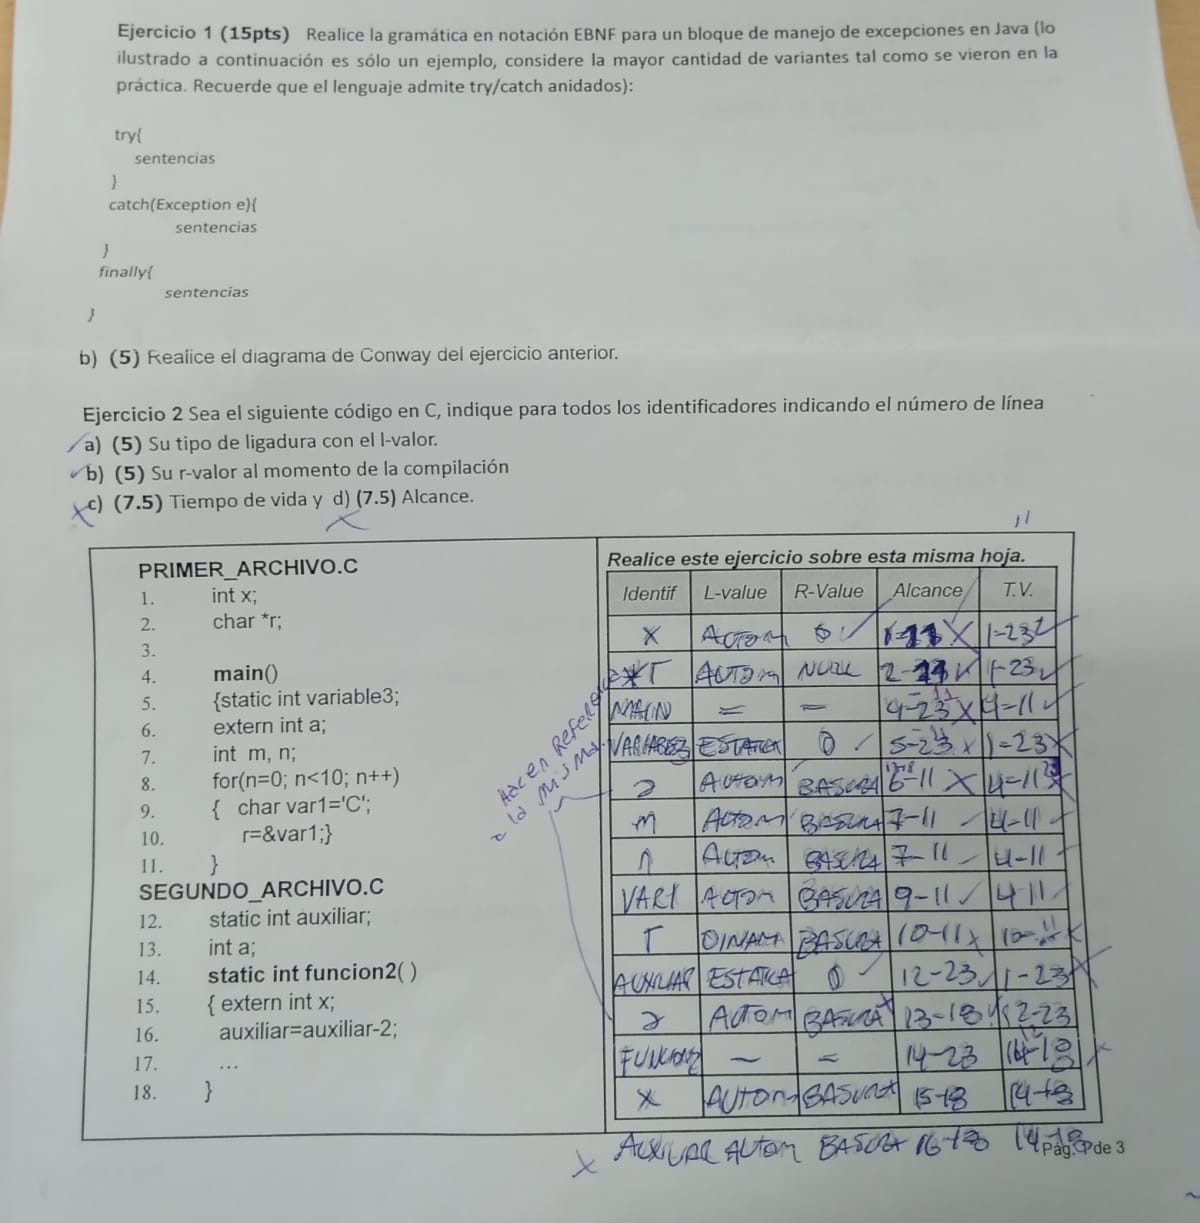 Ejercicio 1 (15pts) Realice la gramática en notación EBNF para un bloque de manejo de excepciones en Java (lo
ilustrado a continuación es sólo un ejemplo, considere la mayor cantidad de variantes tal como se vieron en la
práctica. Recuerde que el lenguaje admite try/catch anidados):
try{
sentencias
}
catch(Exception e){
sentencias
}
finally{
sentencias
}
b) (5) Realice el diagrama de Conway del ejercicio anterior.
Ejercicio 2 Sea el siguiente código en C, indique para todos los identificadores indicando el número de línea
a) (5) Su tipo de ligadura con el l-valor.
b) (5) Su r-valor al momento de la compilación
c) (7.5) Tiempo de vida y d) (7.5) Alcance.
PRIMER_ARCHIVO.C
1. int x;
2. char *r;
3.
4. main()
5. {static int variable3;
6. extern int a;
7. int m, n;
8. for(n=0; n<10; n++)
9. { char var1='C';
10. r=&var1;}
11. }
SEGUNDO_ARCHIVO.C
12. static int auxiliar;
13. int a;
14. static int funcion2( )
15. { extern int x;
16. auxiliar=auxiliar-2;
17. ...
18. }
Realice este ejercicio sobre esta misma hoja.
Identif L-value R-Value Alcance T.V.
X AUTOM 0 1-23
*r AUTOM NULL 1-23
MAIN 4-11
VARIABLE3 ESTATICA 0 1-23
a AUTOM BASURA 6-11 4-11
m AUTOM BASURA 7-11 4-11
n AUTOM BASURA 7-11 4-11
VAR1 AUTOM BASURA 9-11 4-11
r DINAM BASURA 10-11
AUXILIAR ESTATICA 0 12-23 1-23
a AUTOM BASURA 13-18 12-23
FUNCION2 - - 14-23
X AUTOM BASURA 15-18 14-18
AUXILIAR AUTOM BASURA 16-18 14-18
Hacen Referencia
a la misma
de 3